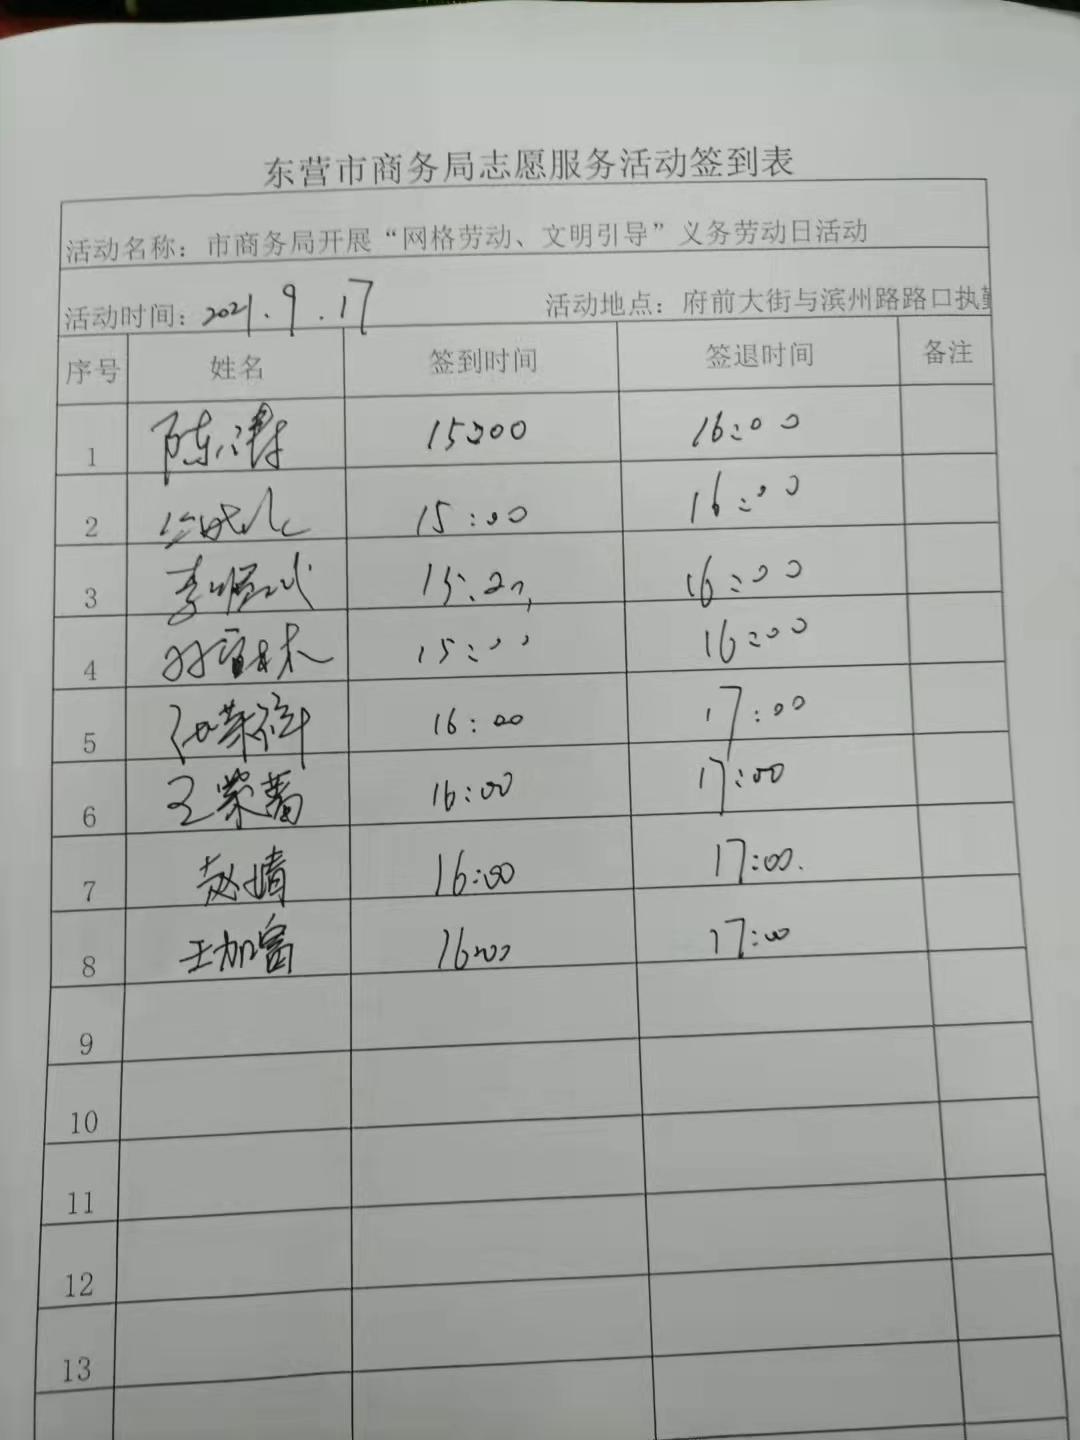 东营市商务局志愿服务活动签到表
活动名称：市商务局开展“网格劳动、文明引导”义务劳动日活动
活动时间：2021.9.17 活动地点：府前大街与滨州路路口执勤
序号 姓名 签到时间 签退时间 备注
1 15:00 16:00
2 15:00 16:00
3 16:00
4 15:00 16:00
5 16:00 17:00
6 16:00 17:00
7 赵婧 16:00 17:00.
8 王加富 16:00 17:00
9
10
11
12
13